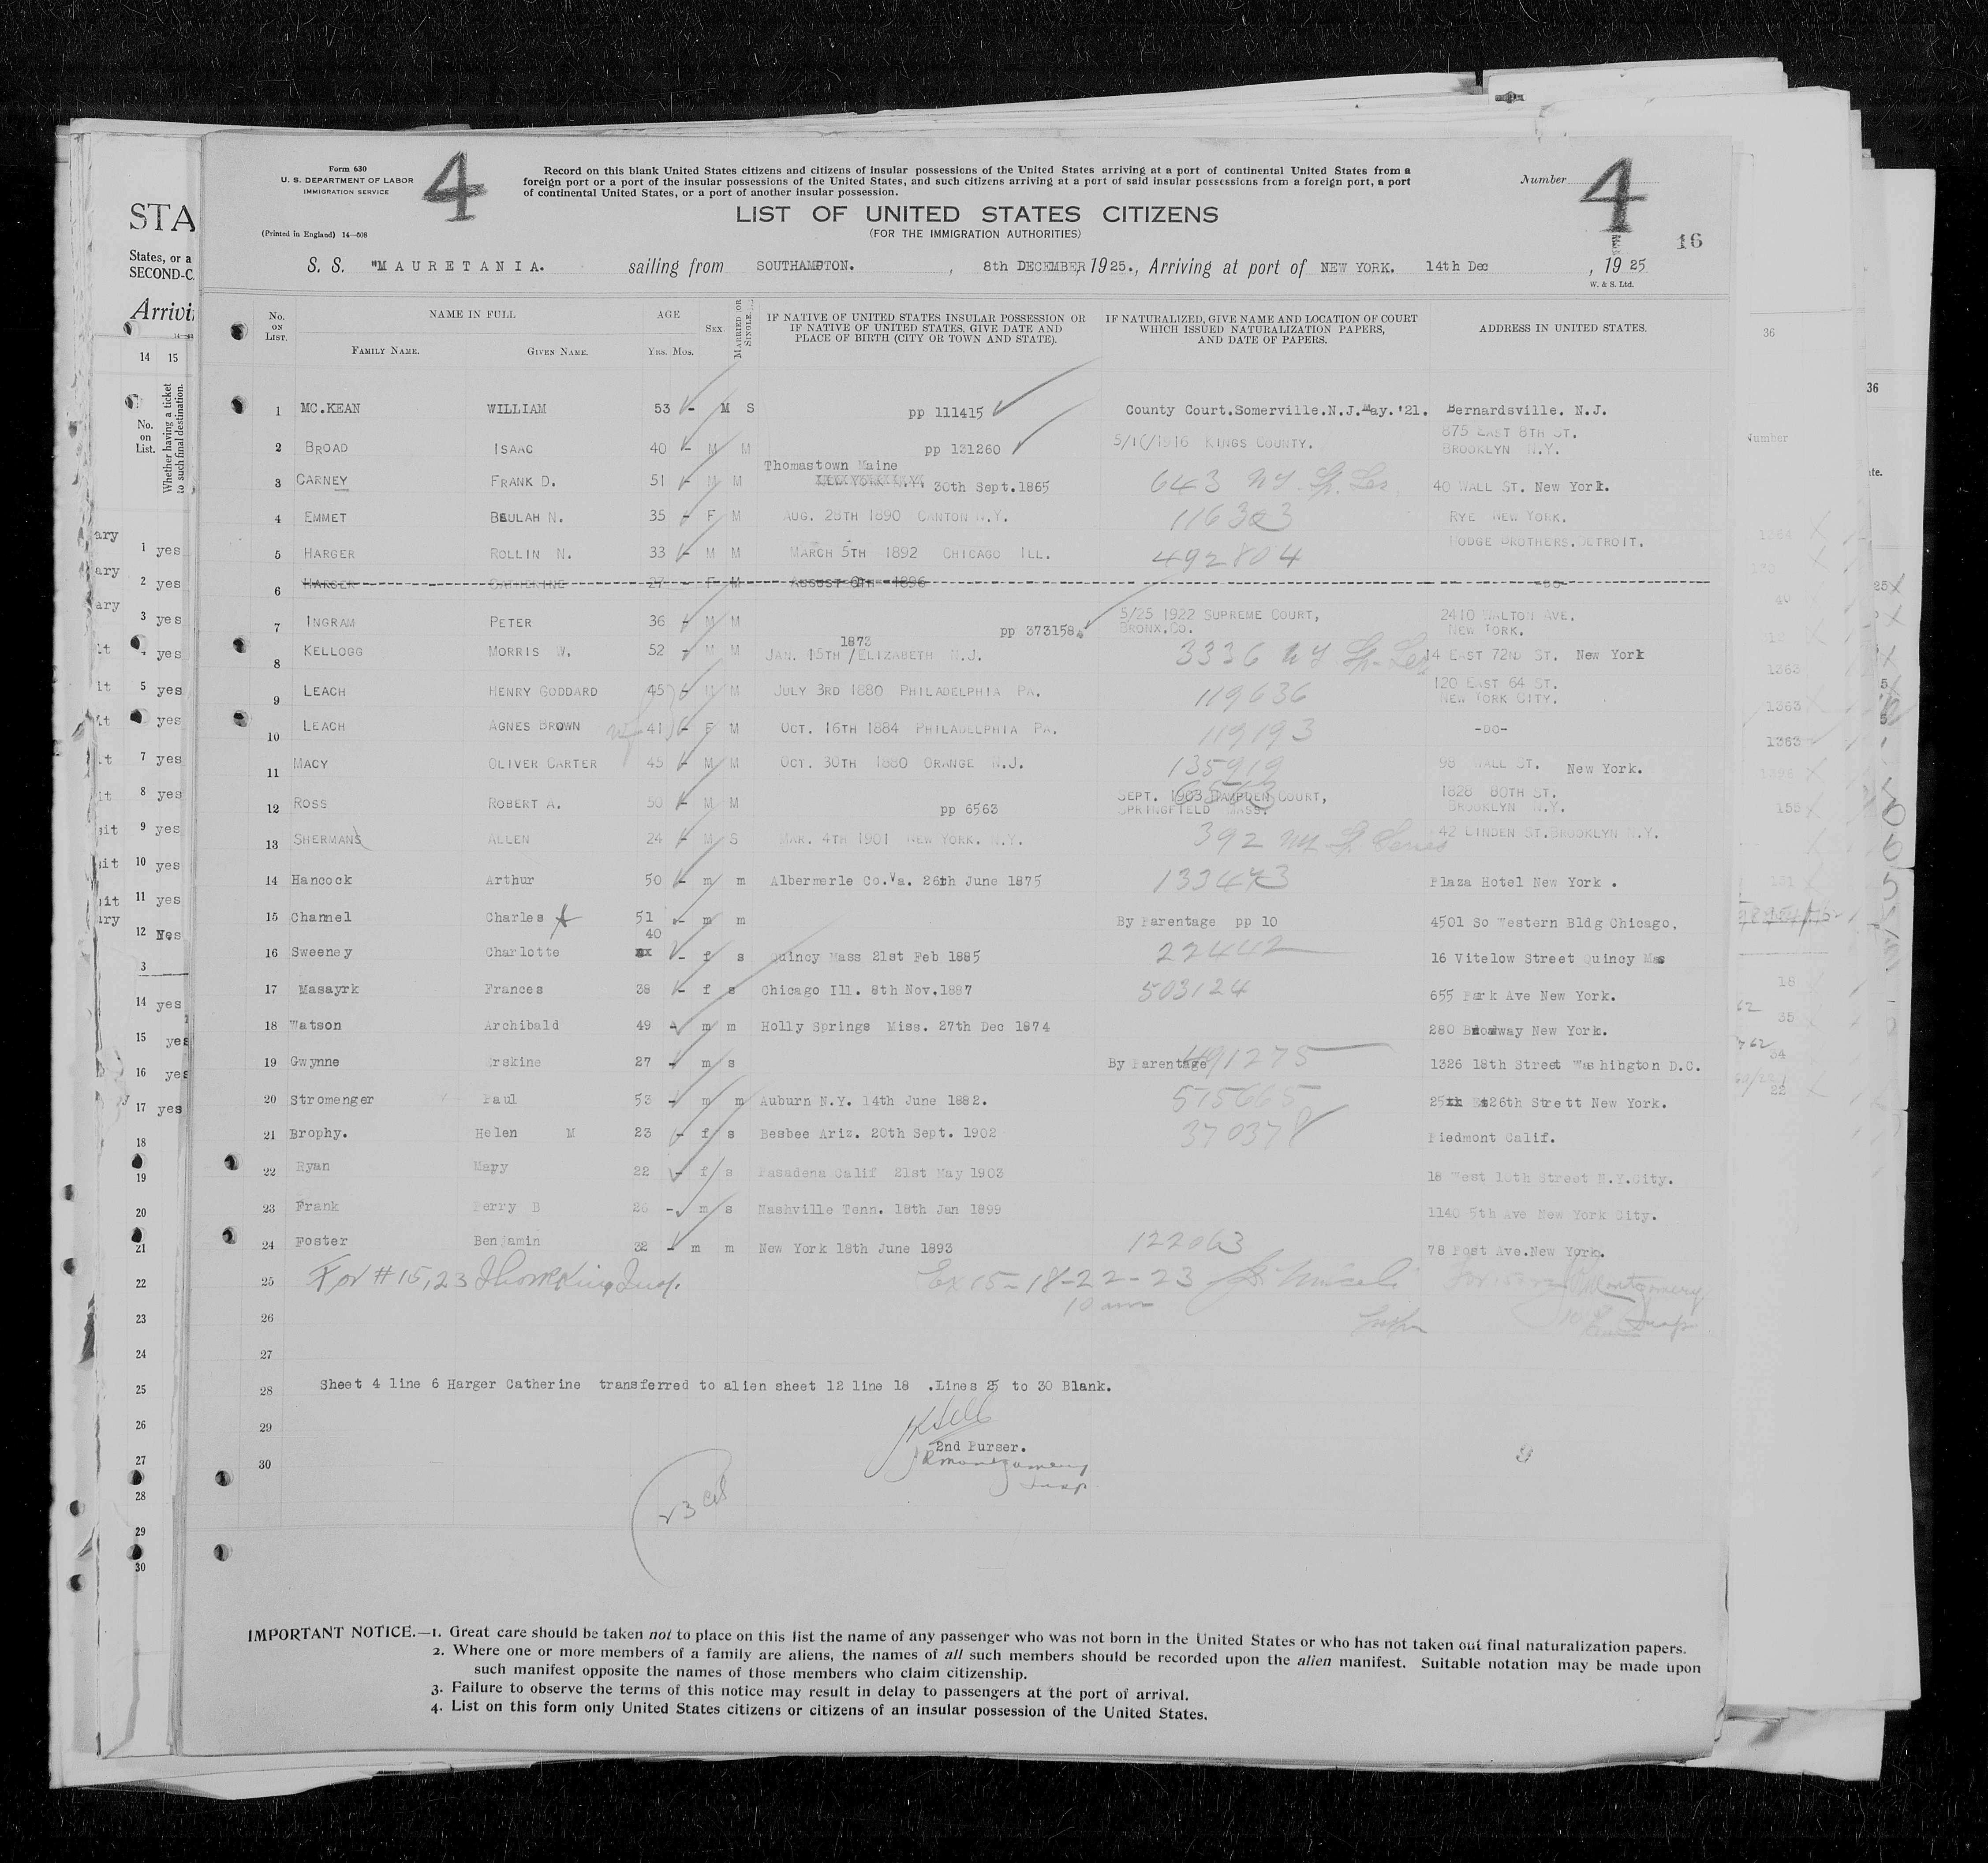 Form 630
U. S. DEPARTMENT OF LABOR
IMMIGRATION SERVICE
(Printed in England) 14—608
4
Record on this blank United States citizens and citizens of insular possessions of the United States arriving at a port of continental United States from a
foreign port or a port of the insular possessions of the United States, and such citizens arriving at a port of said insular possessions from a foreign port, a port
of continental United States, or a port of another insular possession.
Number 4
16
LIST OF UNITED STATES CITIZENS
(FOR THE IMMIGRATION AUTHORITIES)
S. S. "MAURETANIA. sailing from SOUTHAMPTON. , 8th DECEMBER, 1925., Arriving at port of NEW YORK. 14th Dec , 1925
W. & S. Ltd.
No. on List. NAME IN FULL FAMILY NAME. GIVEN NAME. AGE YRS. MOS. SEX. MARRIED OR SINGLE. IF NATIVE OF UNITED STATES INSULAR POSSESSION OR IF NATIVE OF UNITED STATES, GIVE DATE AND PLACE OF BIRTH (CITY OR TOWN AND STATE). IF NATURALIZED, GIVE NAME AND LOCATION OF COURT WHICH ISSUED NATURALIZATION PAPERS, AND DATE OF PAPERS. ADDRESS IN UNITED STATES.
1 MC.KEAN WILLIAM 53 - M S pp 111415 County Court.Somerville.N.J.May.'21. Bernardsville. N.J.
2 BROAD ISAAC 40 - M M pp 131260 KINGS COUNTY. 875 EAST 8TH ST. BROOKLYN N.Y.
3 CARNEY FRANK D. 51 - M M Thomastown Maine 30th Sept.1865 643 NY 40 WALL ST. New York.
4 EMMET BEULAH N. 35 - F M AUG. 28TH 1890 CANTON N.Y. RYE NEW YORK.
5 HARGER ROLLIN N. 33 - M M MARCH 5TH 1892 CHICAGO ILL. 492804 DODGE BROTHERS.DETROIT.
6 HARGER CATHERINE 27 - F M AUGUST 1896 -DO-
7 INGRAM PETER 36 - M M pp 373158 5/25 1922 SUPREME COURT, BRONX.Co. 2410 WALTON AVE. NEW YORK.
8 KELLOGG MORRIS W. 52 - M M JAN. 15TH / 1873 ELIZABETH N.J. 3336 NY 14 EAST 72ND ST. New York
9 LEACH HENRY GODDARD 45 - M M JULY 3RD 1880 PHILADELPHIA PA. 119636 120 EAST 64 ST. NEW YORK CITY.
10 LEACH AGNES BROWN wf 41 - F M OCT. 16TH 1884 PHILADELPHIA PA. 119193 -DO-
11 MACY OLIVER CARTER 45 - M M OCT. 30TH 1880 ORANGE N.J. 135919 98 WALL ST. New York.
12 ROSS ROBERT A. 50 - M M pp 6563 SEPT. 1903 HAMPDEN COURT, SPRINGFIELD MASS. 1828 80TH ST. BROOKLYN N.Y.
13 SHERMANS ALLEN 24 - M S MAR. 4TH 1901 NEW YORK. N.Y. 392 NY 42 LINDEN ST.BROOKLYN N.Y.
14 Hancock Arthur 50 - m m Albermerle Co.Va. 26th June 1875 Plaza Hotel New York .
15 Channel Charles 51 - m m By Parentage pp 10 4501 So Western Bldg Chicago,
16 Sweeney Charlotte 40 - f s Quincy Mass 21st Feb 1885 22442 16 Vitelow Street Quincy Mas
17 Masayrk Frances 38 - f s Chicago Ill. 8th Nov.1887 503124 655 Park Ave New York.
18 Watson Archibald 49 - m m Holly Springs Miss. 27th Dec 1874 280 Broadway New York.
19 Gwynne Erskine 27 - m s By Parentage 491275 1326 18th Street Washihgton D.C.
20 Stromenger Paul 53 - m m Auburn N.Y. 14th June 1882. 575665 26th Strett New York.
21 Brophy. Helen M 23 - f s Besbee Ariz. 20th Sept. 1902 370378 Piedmont Calif.
22 Ryan Mary 22 - f s Pasadena Calif 21st May 1903 18 West 10th Street N.Y.City.
23 Frank Perry B 26 - m s Nashville Tenn. 18th Jan 1899 1140 5th Ave New York City.
24 Foster Benjamin 32 - m m New York 18th June 1893 122063 78 Post Ave.New York.
25 For #15,23 Insp. Ex 15-18-22-23 Montgomery
10 am
26 Insp
27
28 Sheet 4 line 6 Harger Catherine transferred to alien sheet 12 line 18 .Lines 25 to 30 Blank.
29
2nd Purser.
30 Montgomery
Insp.
IMPORTANT NOTICE.—1. Great care should be taken not to place on this list the name of any passenger who was not born in the United States or who has not taken out final naturalization papers.
2. Where one or more members of a family are aliens, the names of all such members should be recorded upon the alien manifest. Suitable notation may be made upon
such manifest opposite the names of those members who claim citizenship.
3. Failure to observe the terms of this notice may result in delay to passengers at the port of arrival.
4. List on this form only United States citizens or citizens of an insular possession of the United States.
STA
States, or a
SECOND-C
Arrivi
14 15
No. on List.
Whether having a ticket to such final destination.
1 yes
2 yes
3 yes
yes
5 yes
yes
7 yes
8 yes
9 yes
10 yes
11 yes
12 Yes
3
14 yes
15 yes
16 yes
17 yes
18
19
20
21
22
23
24
25
26
27
28
29
30
36
Number
36